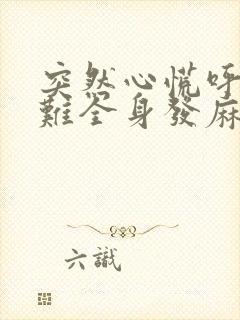 突然心慌呼
難全身發麻
六識